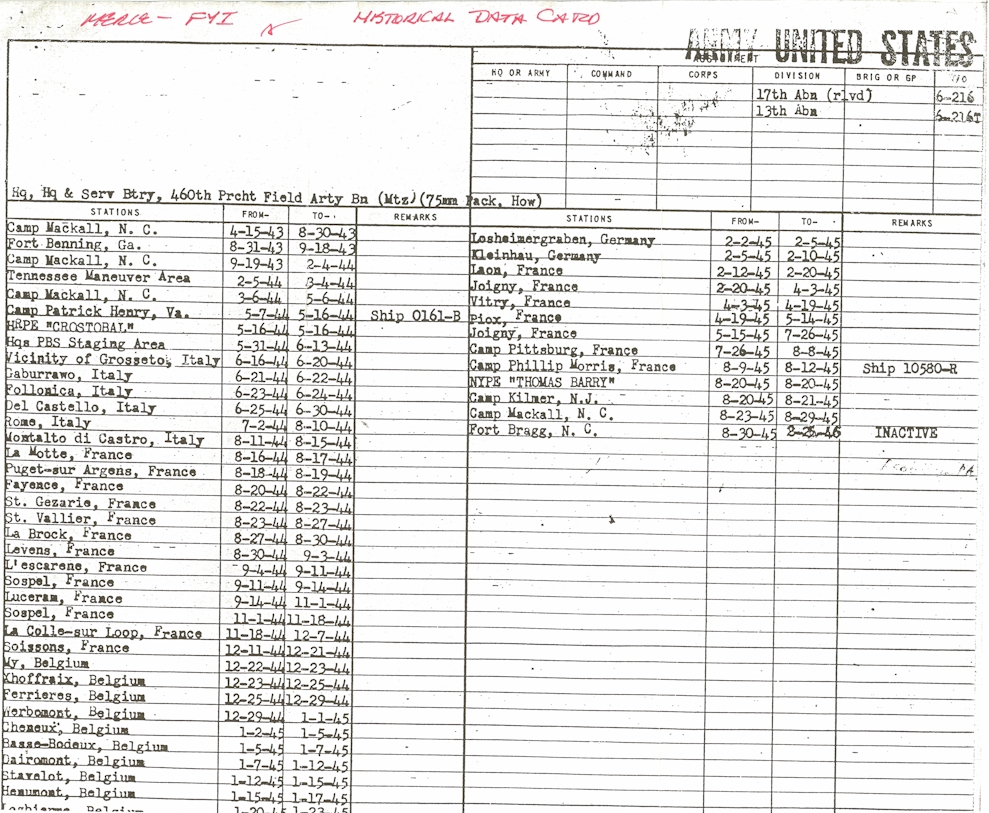 MERLE - FYI HISTORICAL DATA CARD
ARMY UNITED STATES
ASSIGNMENT
HQ OR ARMY COMMAND CORPS DIVISION BRIG OR GP T/O
17th Abn (rlvd) 6-216
13th Abn 6-216T
Hq, Hq & Serv Btry, 460th Prcht Field Arty Bn (Mtz)(75mm Pack, How)
STATIONS FROM- TO- REMARKS
Camp Mackall, N. C. 4-15-43 8-30-43
Fort Benning, Ga. 8-31-43 9-18-43
Camp Mackall, N. C. 9-19-43 2-4-44
Tennessee Maneuver Area 2-5-44 3-4-44
Camp Mackall, N. C. 3-6-44 5-6-44
Camp Patrick Henry, Va. 5-7-44 5-16-44 Ship 0161-B
HRPE "CROSTOBAL" 5-16-44 5-16-44
Hqs PBS Staging Area 5-31-44 6-13-44
Vicinity of Grosseto, Italy 6-16-44 6-20-44
Gaburrawo, Italy 6-21-44 6-22-44
Follonica, Italy 6-23-44 6-24-44
Del Castello, Italy 6-25-44 6-30-44
Rome, Italy 7-2-44 8-10-44
Montalto di Castro, Italy 8-11-44 8-15-44
La Motte, France 8-16-44 8-17-44
Puget-sur Argens, France 8-18-44 8-19-44
Fayence, France 8-20-44 8-22-44
St. Gezarie, France 8-22-44 8-23-44
St. Vallier, France 8-23-44 8-27-44
La Brock, France 8-27-44 8-30-44
Levens, France 8-30-44 9-3-44
L'escarene, France 9-4-44 9-11-44
Sospel, France 9-11-44 9-14-44
Luceram, France 9-14-44 11-1-44
Sospel, France 11-1-44 11-18-44
La Colle-sur Loop, France 11-18-44 12-7-44
Soissons, France 12-11-44 12-21-44
My, Belgium 12-22-44 12-23-44
Xhoffraix, Belgium 12-23-44 12-25-44
Ferrieres, Belgium 12-25-44 12-29-44
Werbomont, Belgium 12-29-44 1-1-45
Cheneux, Belgium 1-2-45 1-5-45
Basse-Bodeux, Belgium 1-5-45 1-7-45
Dairomont, Belgium 1-7-45 1-12-45
Stavelot, Belgium 1-12-45 1-15-45
Heaumont, Belgium 1-15-45 1-17-45
Belgium 1-20-45 1-23-45
STATIONS FROM- TO- REMARKS
Losheimergraben, Germany 2-2-45 2-5-45
Kleinhau, Germany 2-5-45 2-10-45
Laon, France 2-12-45 2-20-45
Joigny, France 2-20-45 4-3-45
Vitry, France 4-3-45 4-19-45
Piox, France 4-19-45 5-14-45
Joigny, France 5-15-45 7-26-45
Camp Pittsburg, France 7-26-45 8-8-45
Camp Phillip Morris, France 8-9-45 8-12-45 Ship 10580-R
NYPE "THOMAS BARRY" 8-20-45 8-20-45
Camp Kilmer, N.J. 8-20-45 8-21-45
Camp Mackall, N. C. 8-23-45 8-29-45
Fort Bragg, N. C. 8-30-45 2-25-46 INACTIVE